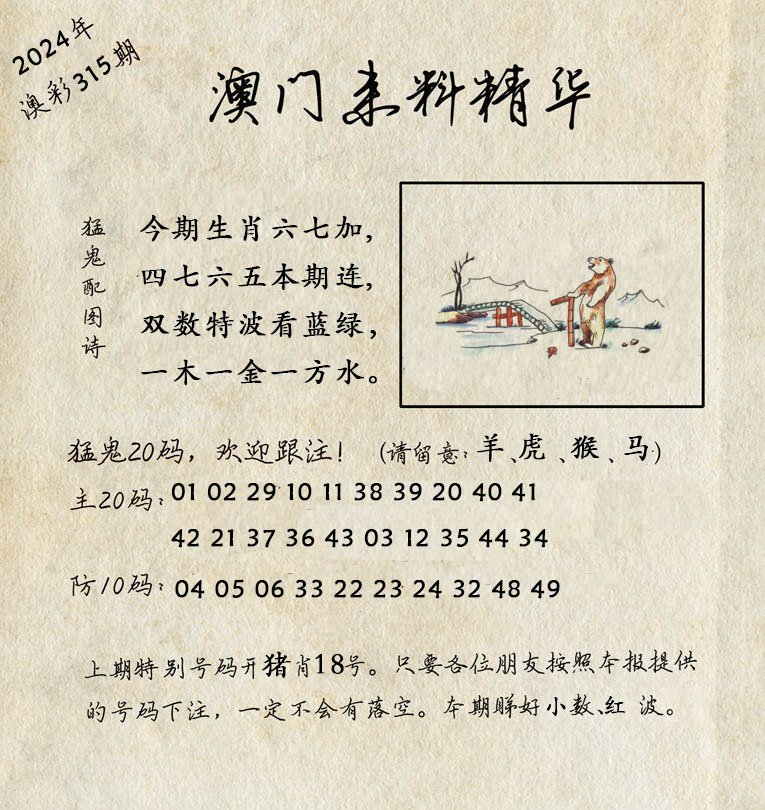 2024年
澳彩315期
澳门来料精华
猛鬼配图诗
今期生肖六七加，
四七六五本期连，
双数特波看蓝绿，
一木一金一方水。
猛鬼20码，欢迎跟注！（请留意：羊、虎、猴、马）
主20码：01 02 29 10 11 38 39 20 40 41
42 21 37 36 43 03 12 35 44 34
防10码：04 05 06 33 22 23 24 32 48 49
上期特别号码开猪肖18号。只要各位朋友按照本报提供
的号码下注，一定不会有落空。本期睇好小数、红 波。